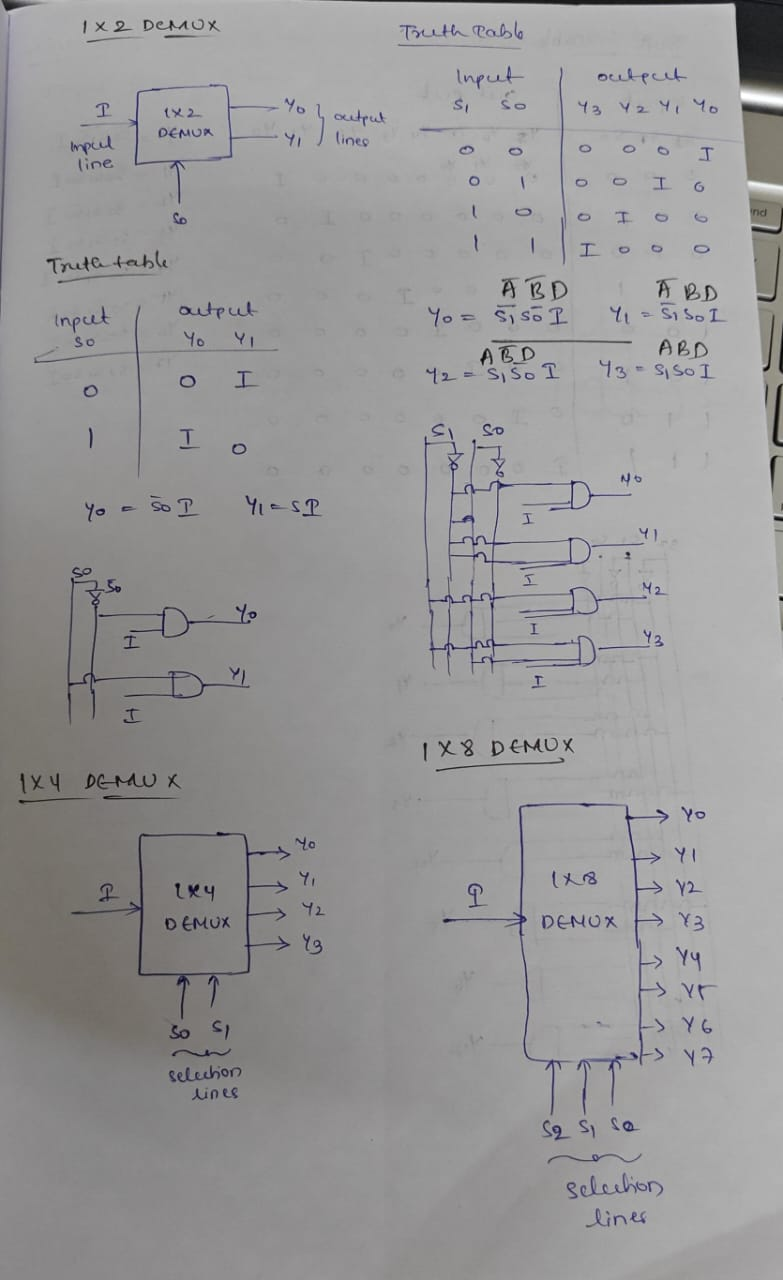 1X2 DEMUX
I
Input
line
1X2
DEMUX
Y0
Y1
output
lines
S0
Truth table
Input output
S0 Y0 Y1
0 0 I
1 I 0
Y0 = S̅0 I Y1 = S I
S0
S̅0
I
Y0
I
Y1
1X4 DEMUX
I
1X4
DEMUX
Y0
Y1
Y2
Y3
S0 S1
selection
lines
Truth table
Input output
S1 S0 Y3 Y2 Y1 Y0
0 0 0 0 0 I
0 1 0 0 I 0
1 0 0 I 0 0
1 1 I 0 0 0
A̅ B̅ D A̅ B D
Y0 = S̅1 S̅0 I Y1 = S̅1 S0 I
A B̅ D A B D
Y2 = S1 S̅0 I Y3 = S1 S0 I
S1 S0
Y0
I
Y1
I
Y2
I
Y3
I
1X8 DEMUX
I
1X8
DEMUX
Y0
Y1
Y2
Y3
Y4
Y5
Y6
Y7
S2 S1 S0
selection
lines